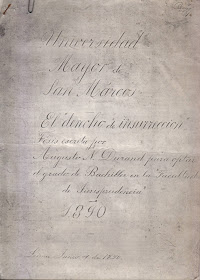 Universidad
Mayor de
San Marcos
"El derecho de insurrección"
Tesis escrita por
Augusto N. Durand para optar
el grado de Bachiller en la Facultad
de Jurisprudencia
1890
Lima, Junio de 1890